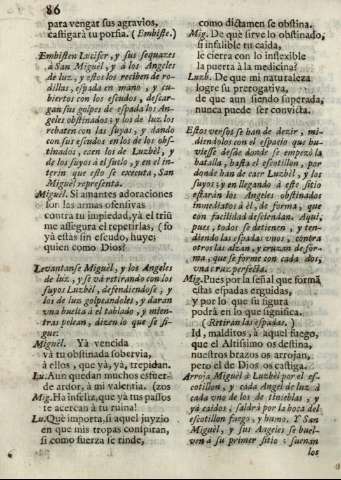 86
para vengar sus agravios,
castigarà tu porfia. (Embiste.)
Embisten Lucifer, y sus sequazes
à San Miguèl, y à los Angeles
de luz, y estos los reciben de ro-
dillas, espada en mano, y cu-
biertos con los escudos, descar-
gan sus golpes de espada los An-
geles obstinados; y los de luz los
rebaten con las suyas, y dando
con sus escudos en los de los obs-
tinados, caen los de Luzbèl, y
de los suyos à el suelo, y en el in-
terin que esto se executa, San
Miguèl representa.
Miguèl. Si amantes adoraciones
son las armas ofensivas
contra tu impiedad, yà el triũ
me assegura el repetirlas, (fo
yà estas sin escudo, huye;
quien como Dios?
Levantanse Miguèl, y los Angeles
de luz, y se và retirando con los
suyos Luzbèl, defendiendose, y
los de luz golpeandoles, y daran
una buelta à el tablado, y mien-
tras pelean, dizen lo que se si-
gue:
Miguèl. Yà vencida
và tu obstinada sobervia,
à ellos, que yà, yà, trepidan.
Lu. Aun quedan muchos esfuer-
de ardor, à mi valentia. (zos
Mig. Ha infeliz, que yà tus passos
te acercan à tu ruina!
Lu. Què importa, si aquel juyzio
en que mis tropas conspiran,
si como fuerza se rinde,
como dictamen se obstina.
Mig. De què sirve lo obstinado,
si infalible tu caida,
le cierra con lo inflexible
la puerta à la medicina?
Luzb. De que mi naturaleza
logre su prerogativa,
de que aun siendo superada,
nunca puede ser convicta.
Estos versos se han de dezir, mi-
diendolos con el espacio que hu-
viesse desde donde se empezò la
batalla, hasta el escotillon, por
donde han de caer Luzbèl, y los
suyos; y en llegando à este sitio
estaràn los Angeles obstinados
immediatos à èl, de forma, que
con facilidad desciendan. Aqui,
pues, todos se detienen, y ten-
diendo las espadas unos, contra
otros las alzan, y cruzan de for-
ma, que se forme con cada dos,
una cruz perfecta.
Mig. Pues por la señal que formã
estas espadas erguidas,
y por lo que su figura
podrà en lo que significa.
(Retiran las espadas.)
Id, malditos, à aquel fuego,
que el Altissimo os destina,
nuestros brazos os arrojan,
pero el de Dios os castiga.
Arroja Miguèl à Luzbèl por el es-
cotillon, y cada Angel de luz à
cada uno de los de tinieblas, y
yà caidos, saldrà por la boca del
escotillon fuego, y humo. Y San
Miguèl, y sus Angeles se buel-
ven à su primer sitio: suenan
los